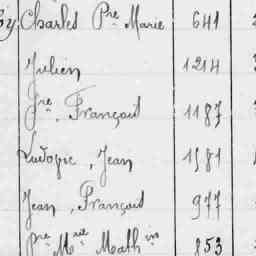 Charles Pre Marie 641
Julien 1214
Jre, François 1187
Ludovic, Jean 1581
Jean, François 977
Pre Mie Math in 853